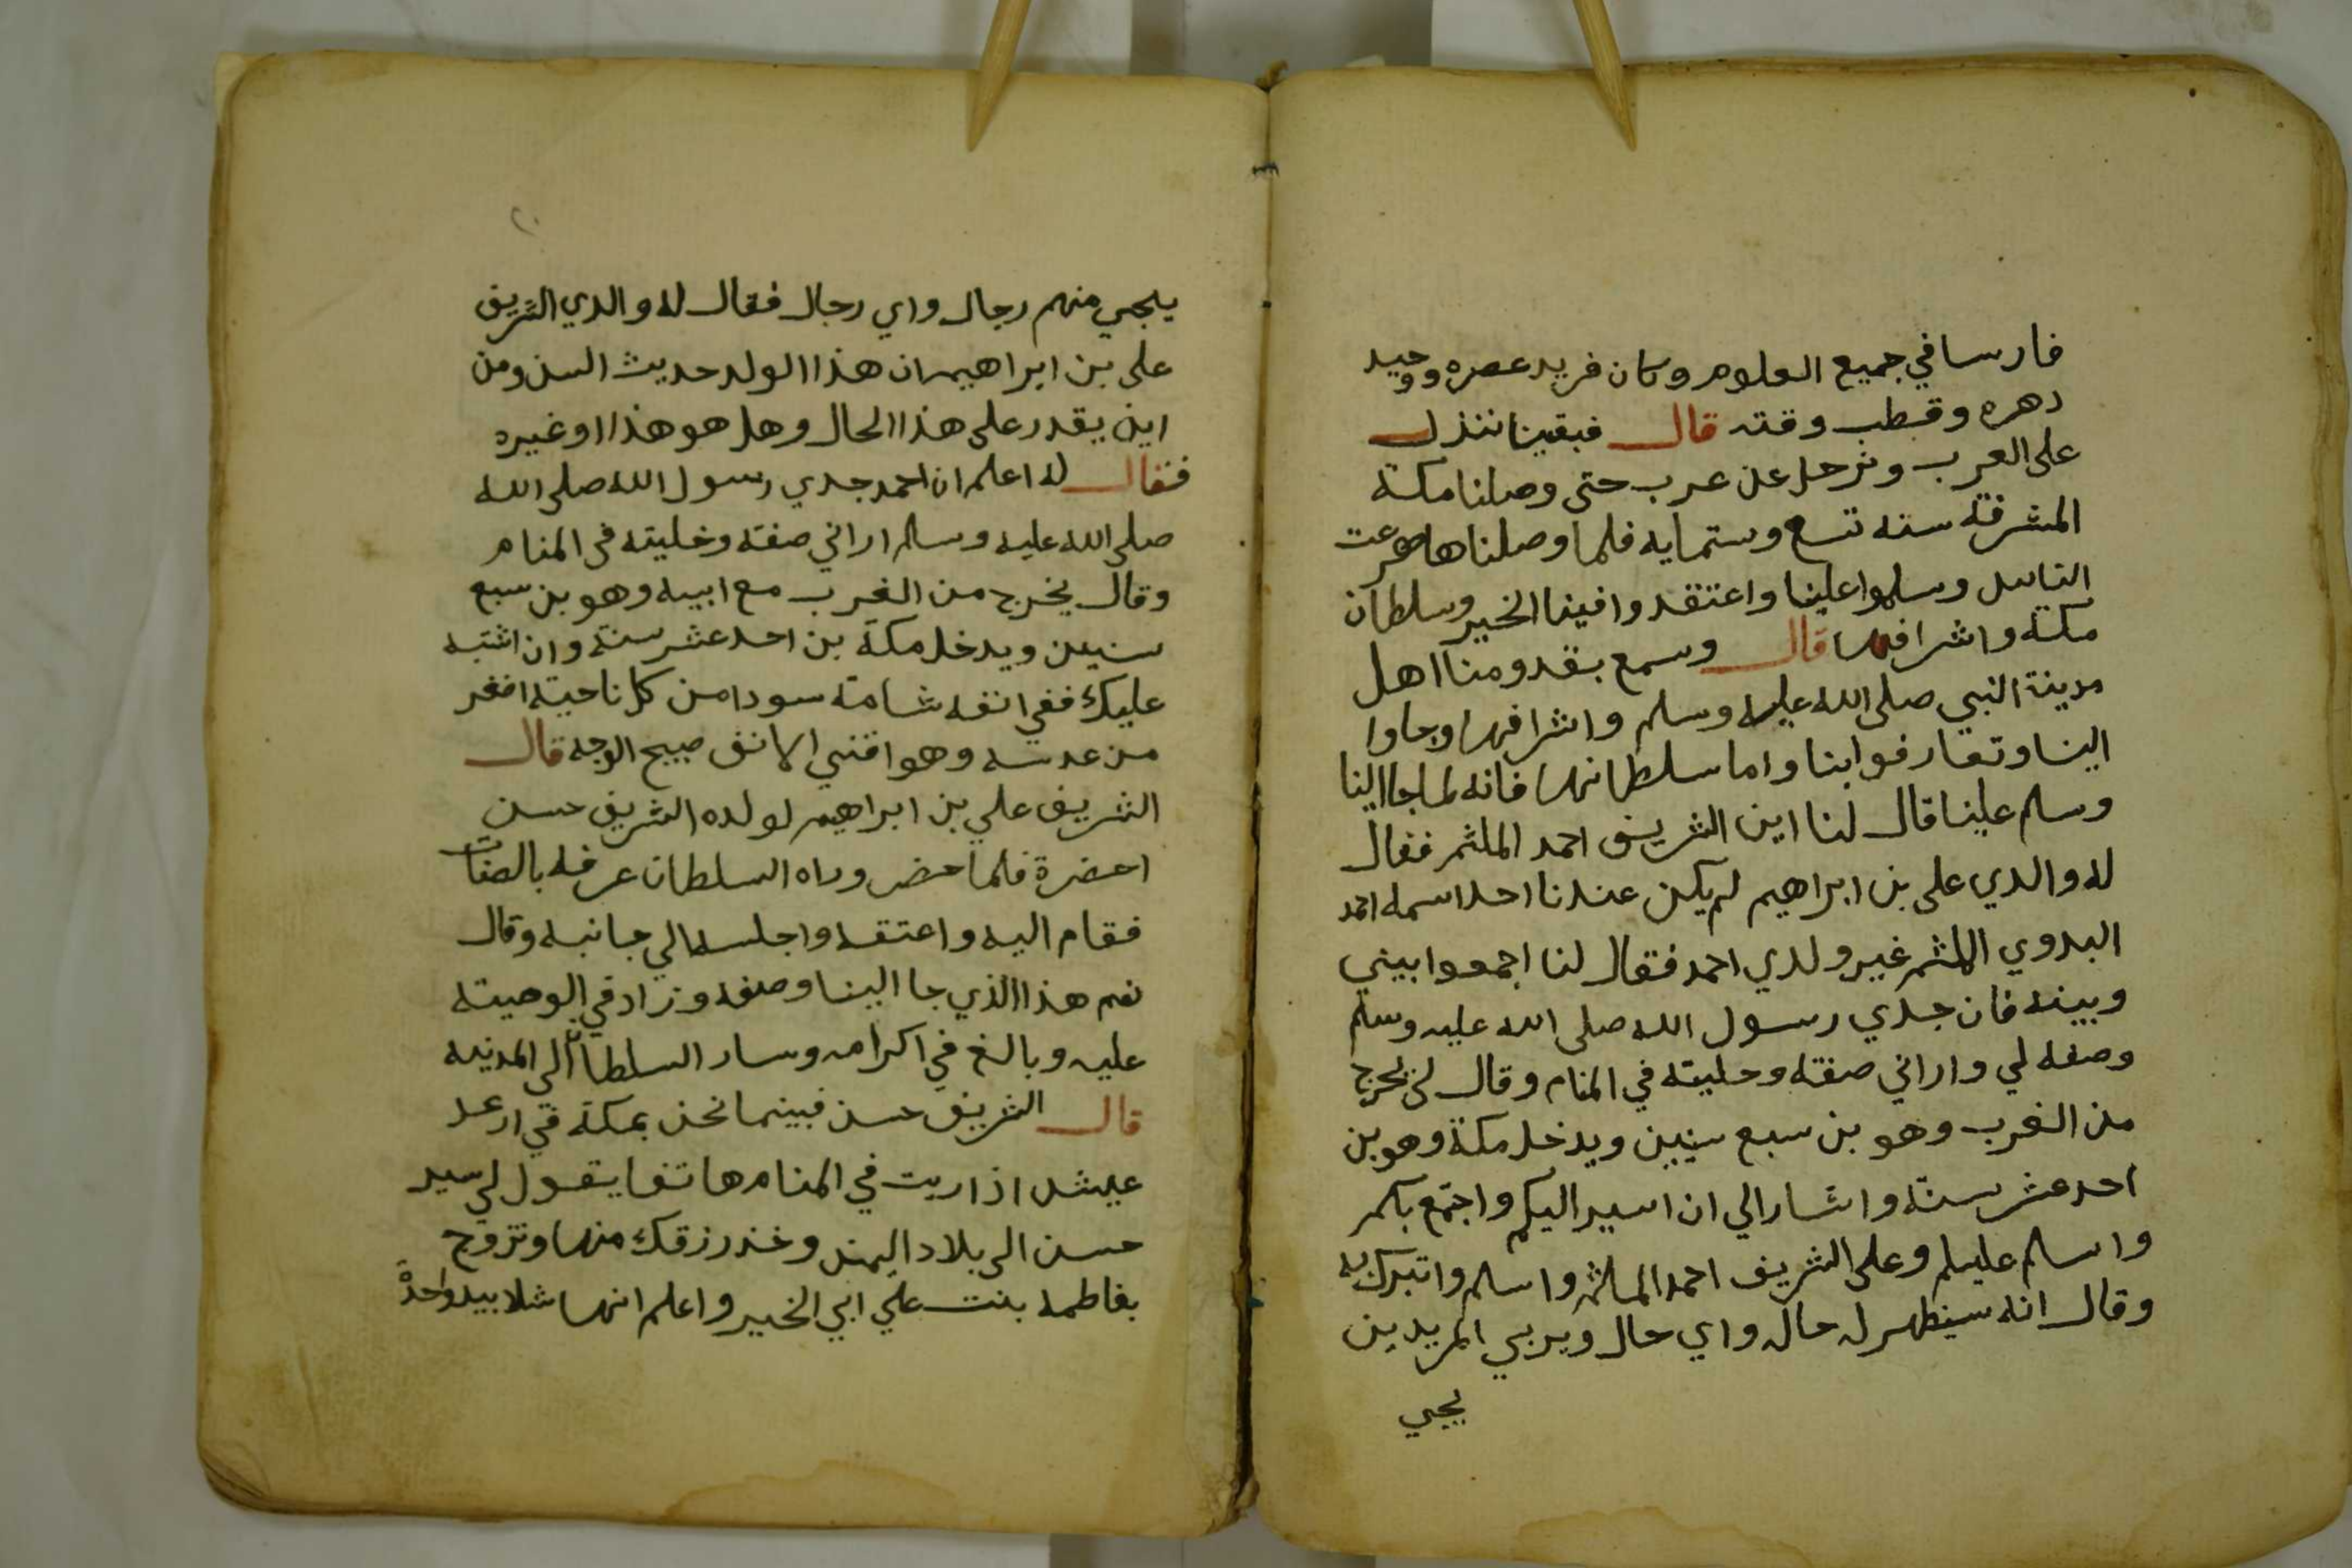 فارسا في جميع العلوم وكان فريد عصره ووحيد
دهره وقطب وقته قال فبقينا ننزل
على العرب ونرحل عن عرب حتى وصلنا مكة
المشرفة سنه تسع وستمايه فلما وصلناها هرعت
الناس وسلموا علينا واعتقدوا فينا الخير وسلطان
مكة واشرافها قال وسمع بقدومنا اهل
مدينة النبي صلى الله عليه وسلم واشرافها وجاوا
الينا وتعارفوا بنا واما سلطانها فانه لما جا الينا
وسلم علينا قال لنا اين الشريف احمد الملثم فقال
له والدي على بن ابراهيم لم يكن عندنا احد اسمه احمد
البدوي الملثم غير ولدي احمد فقال لنا اجمعوا بيني
وبينه فان جدي رسول الله صلى الله عليه وسلم
وصفه لي واراني صفته وحليته في المنام وقال لي يخرج
من الغرب وهو بن سبع سنين ويدخل مكة وهو بن
احد عشر سنة واشار الي ان اسير اليكم واجتمع بكم
واسلم عليكم وعلى الشريف احمد الملثم واسلم واتبرك به
وقال انه سيظهر له حال واي حال ويربي المريدين
يجي
يجي منهم رجال واي رجال فقال له والدي الشريف
على بن ابراهيم ان هذا الولد حديث السن ومن
اين يقدر على هذا الحال وهل هو هذا او غيره
فقال له اعلم ان احمد جدي رسول الله صلى الله
صلى الله عليه وسلم اراني صفته وحليته في المنام
وقال يخرج من الغرب مع ابيه وهو بن سبع
سنين ويدخل مكة بن احد عشر سنة وان اشتبه
عليك ففي انفه شامة سودا من كل ناحية اصغر
من عدسه وهو اقني الانف صبيح الوجه قال
الشريف علي بن ابراهيم لولده الشريف حسن
احضرة فلما حضر وراه السلطان عرفه بالصفات
فقام اليه واعتقه واجلسه الي جانبه وقال
نعم هذا الذي جا الينا وصفه وزاد في الوصية
عليه وبالغ في اكرامه وسار السلطان الى المدينه
قال الشريف حسن فبينما نحن بمكة في ارغد
عيش اذ اريت في المنام هاتفا يقول لي سير
حسن الى بلاد اليمن وخذ رزقك منها وتزوج
بفاطمه بنت علي ابي الخير واعلم انها شلا بيد واحدة